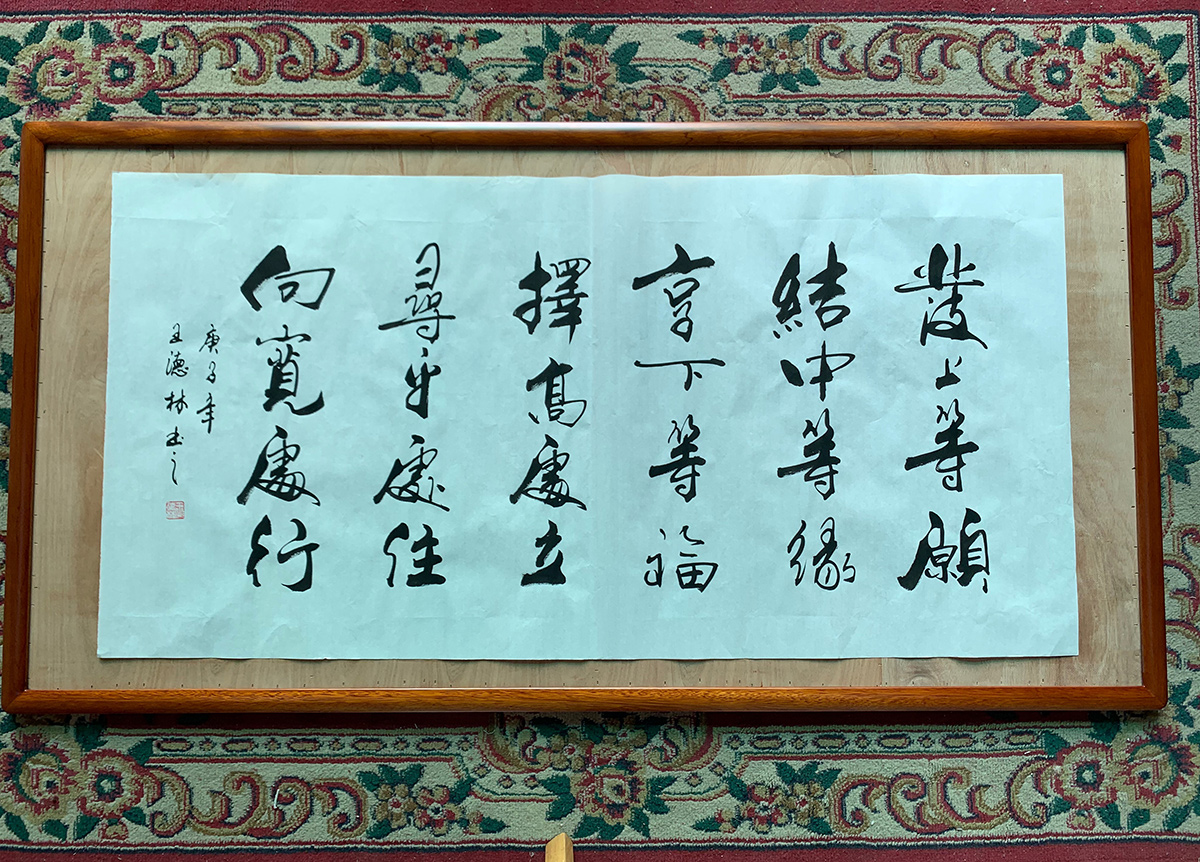 發上等願
結中等緣
享下等福
擇高處立
尋平處住
向寬處行
庚子年
王德林書之